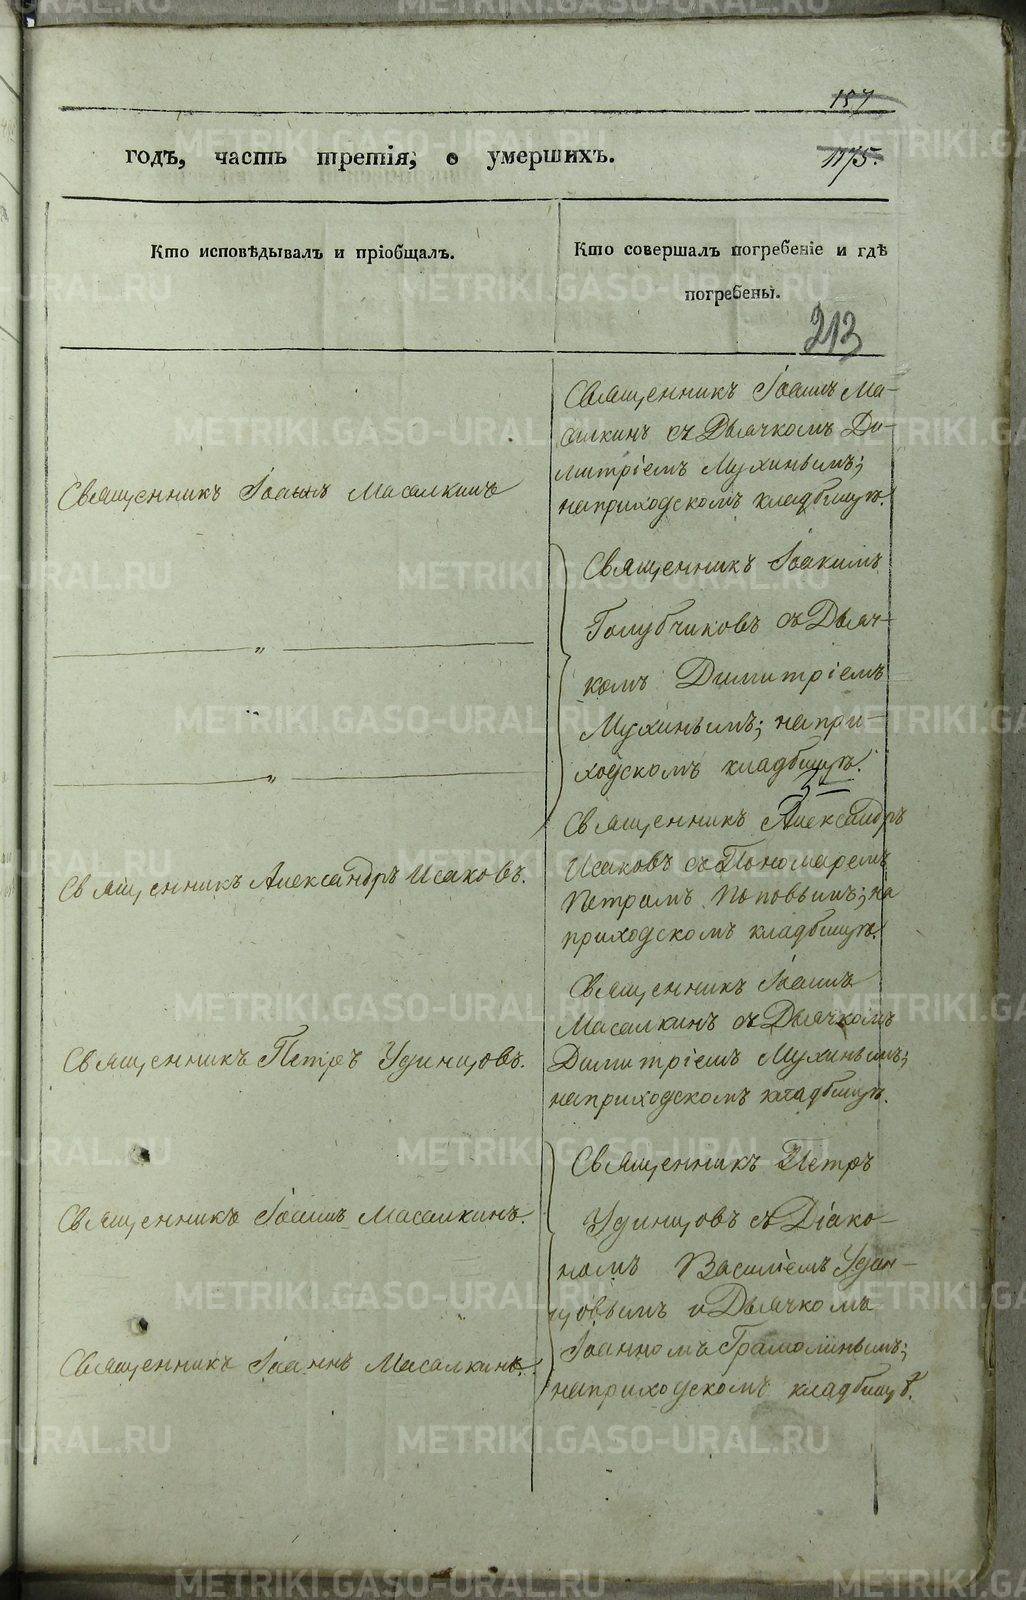 157
годъ, часть третія, о умершихъ.
1175.
Кто исповѣдывалъ и пріобщалъ.
Кто совершалъ погребеніе и гдѣ
погребены.
213
Священникъ Іоаннъ Ма-
салкинъ съ Дьячкомъ Ди-
митріемъ Мухинымъ;
на приходскомъ кладбищѣ.
Священникъ Іоаннъ Масалкинъ
Священникъ Іоакимъ
Голубчиковъ съ Дьяч-
комъ Димитріемъ
Мухинымъ; на при-
ходскомъ кладбищѣ.
"
"
Священникъ Александръ
Исаковъ съ Пономаремъ
Петромъ Поповымъ; на
приходскомъ кладбищѣ.
Священникъ Александръ Исаковъ.
Священникъ Іоаннъ
Масалкинъ съ Дьячкомъ
Димитріемъ Мухинымъ;
на приходскомъ кладбищѣ.
Священникъ Петръ Удинцовъ.
Священникъ Петръ
Удинцовъ съ Діако-
номъ Василіемъ Удин-
цовымъ и Дьячкомъ
Іоанномъ Грамолинымъ;
на приходскомъ кладбищѣ.
Священникъ Іоаннъ Масалкинъ.
Священникъ Іоаннъ Масалкинъ.
METRIKI.GASO-URAL.RU